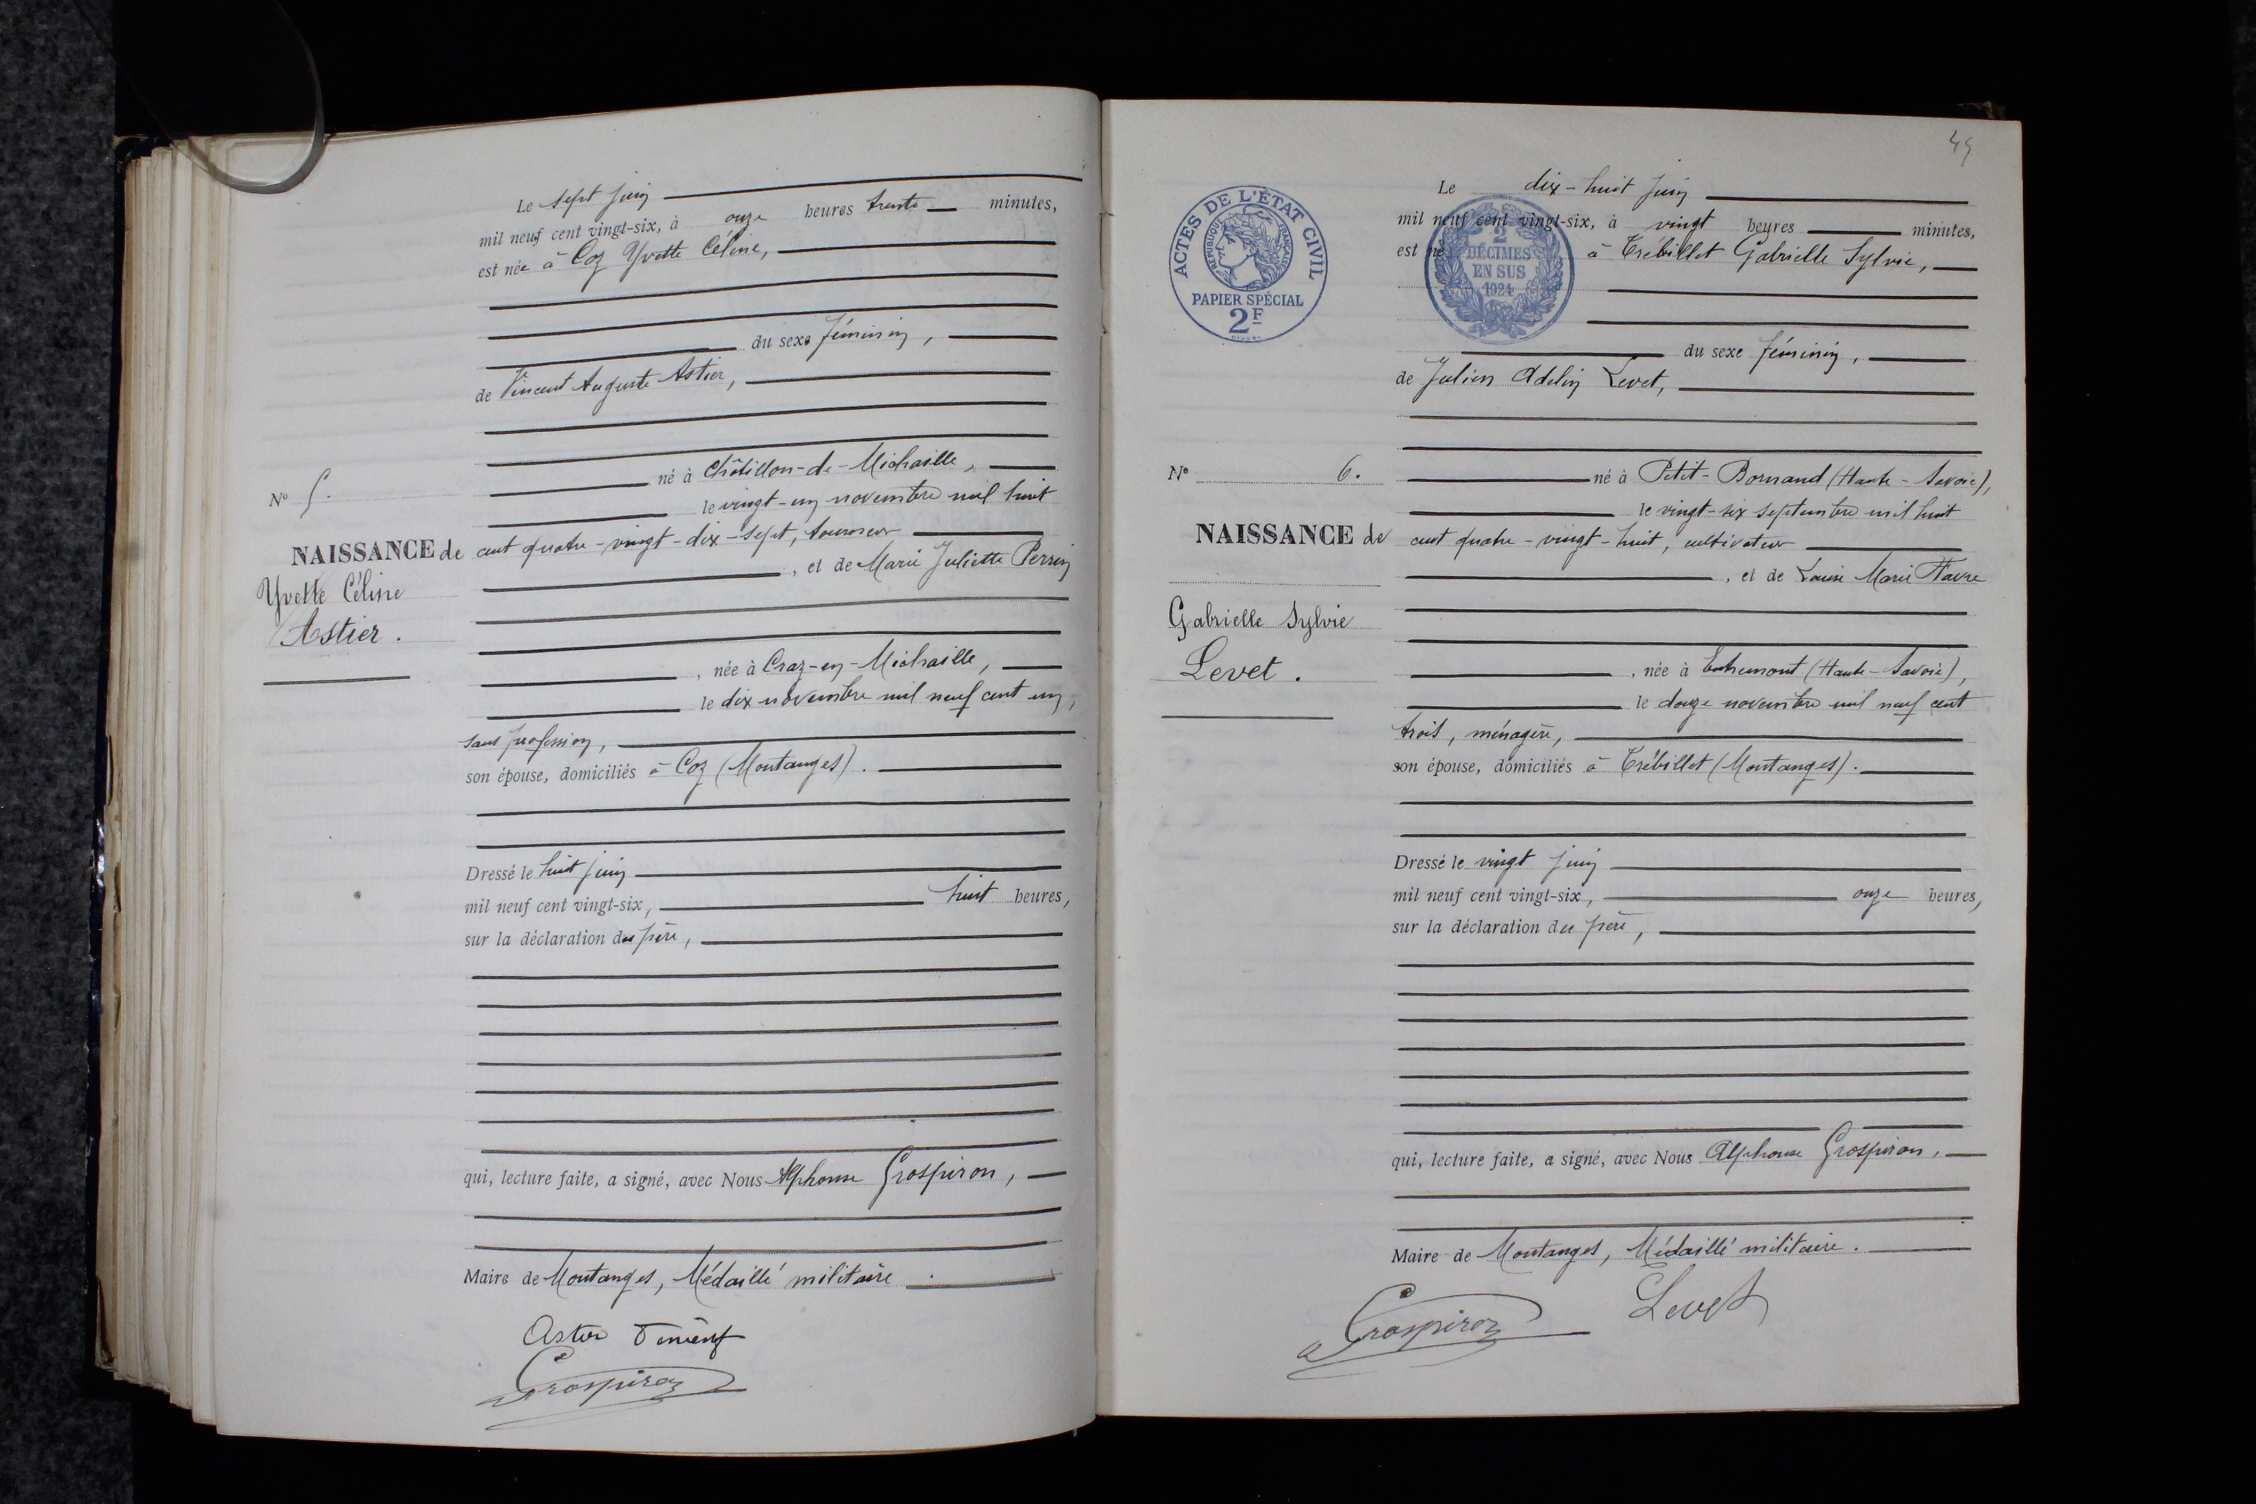 Le sept juin
mil neuf cent vingt-six, à onze heures trente minutes,
est née à Coz Yvette Céline,
du sexe féminin,
de Vincent Auguste Astier,
né à Châtillon-de-Michaille,
le vingt-un novembre mil huit
cent quatre-vingt-dix-sept, tourneur
, et de Marie Juliette Perrin
, née à Craz-en-Michaille,
le dix novembre mil neuf cent un,
sans profession,
son épouse, domiciliés à Coz (Montanges).
Dressé le huit juin
mil neuf cent vingt-six, huit heures,
sur la déclaration du père,
qui, lecture faite, a signé, avec Nous Alphonse Grospiron,
Maire de Montanges, Médaillé militaire.
Astier
Grospiron
N° 5.
NAISSANCE de
Yvette Céline
Astier.
49
ACTES DE L'ÉTAT CIVIL
RÉPUBLIQUE FRANÇAISE
PAPIER SPÉCIAL
2F
2
DÉCIMES
EN SUS
1924
Le dix-huit juin
mil neuf cent vingt-six, à vingt heures minutes,
est né à Trébillet Gabrielle Sylvie,
du sexe féminin,
de Julien Adelin Levet,
né à Petit-Bornand (Haute-Savoie),
le vingt-six septembre mil huit
cent quatre-vingt-huit, cultivateur
, et de Louise Marie Favre
, née à Entremont (Haute-Savoie),
le douze novembre mil neuf cent
trois, ménagère,
son épouse, domiciliés à Trébillet (Montanges).
Dressé le vingt juin
mil neuf cent vingt-six, onze heures,
sur la déclaration du père,
qui, lecture faite, a signé, avec Nous Alphonse Grospiron,
Maire de Montanges, Médaillé militaire.
Grospiron Levet
N° 6.
NAISSANCE de
Gabrielle Sylvie
Levet.